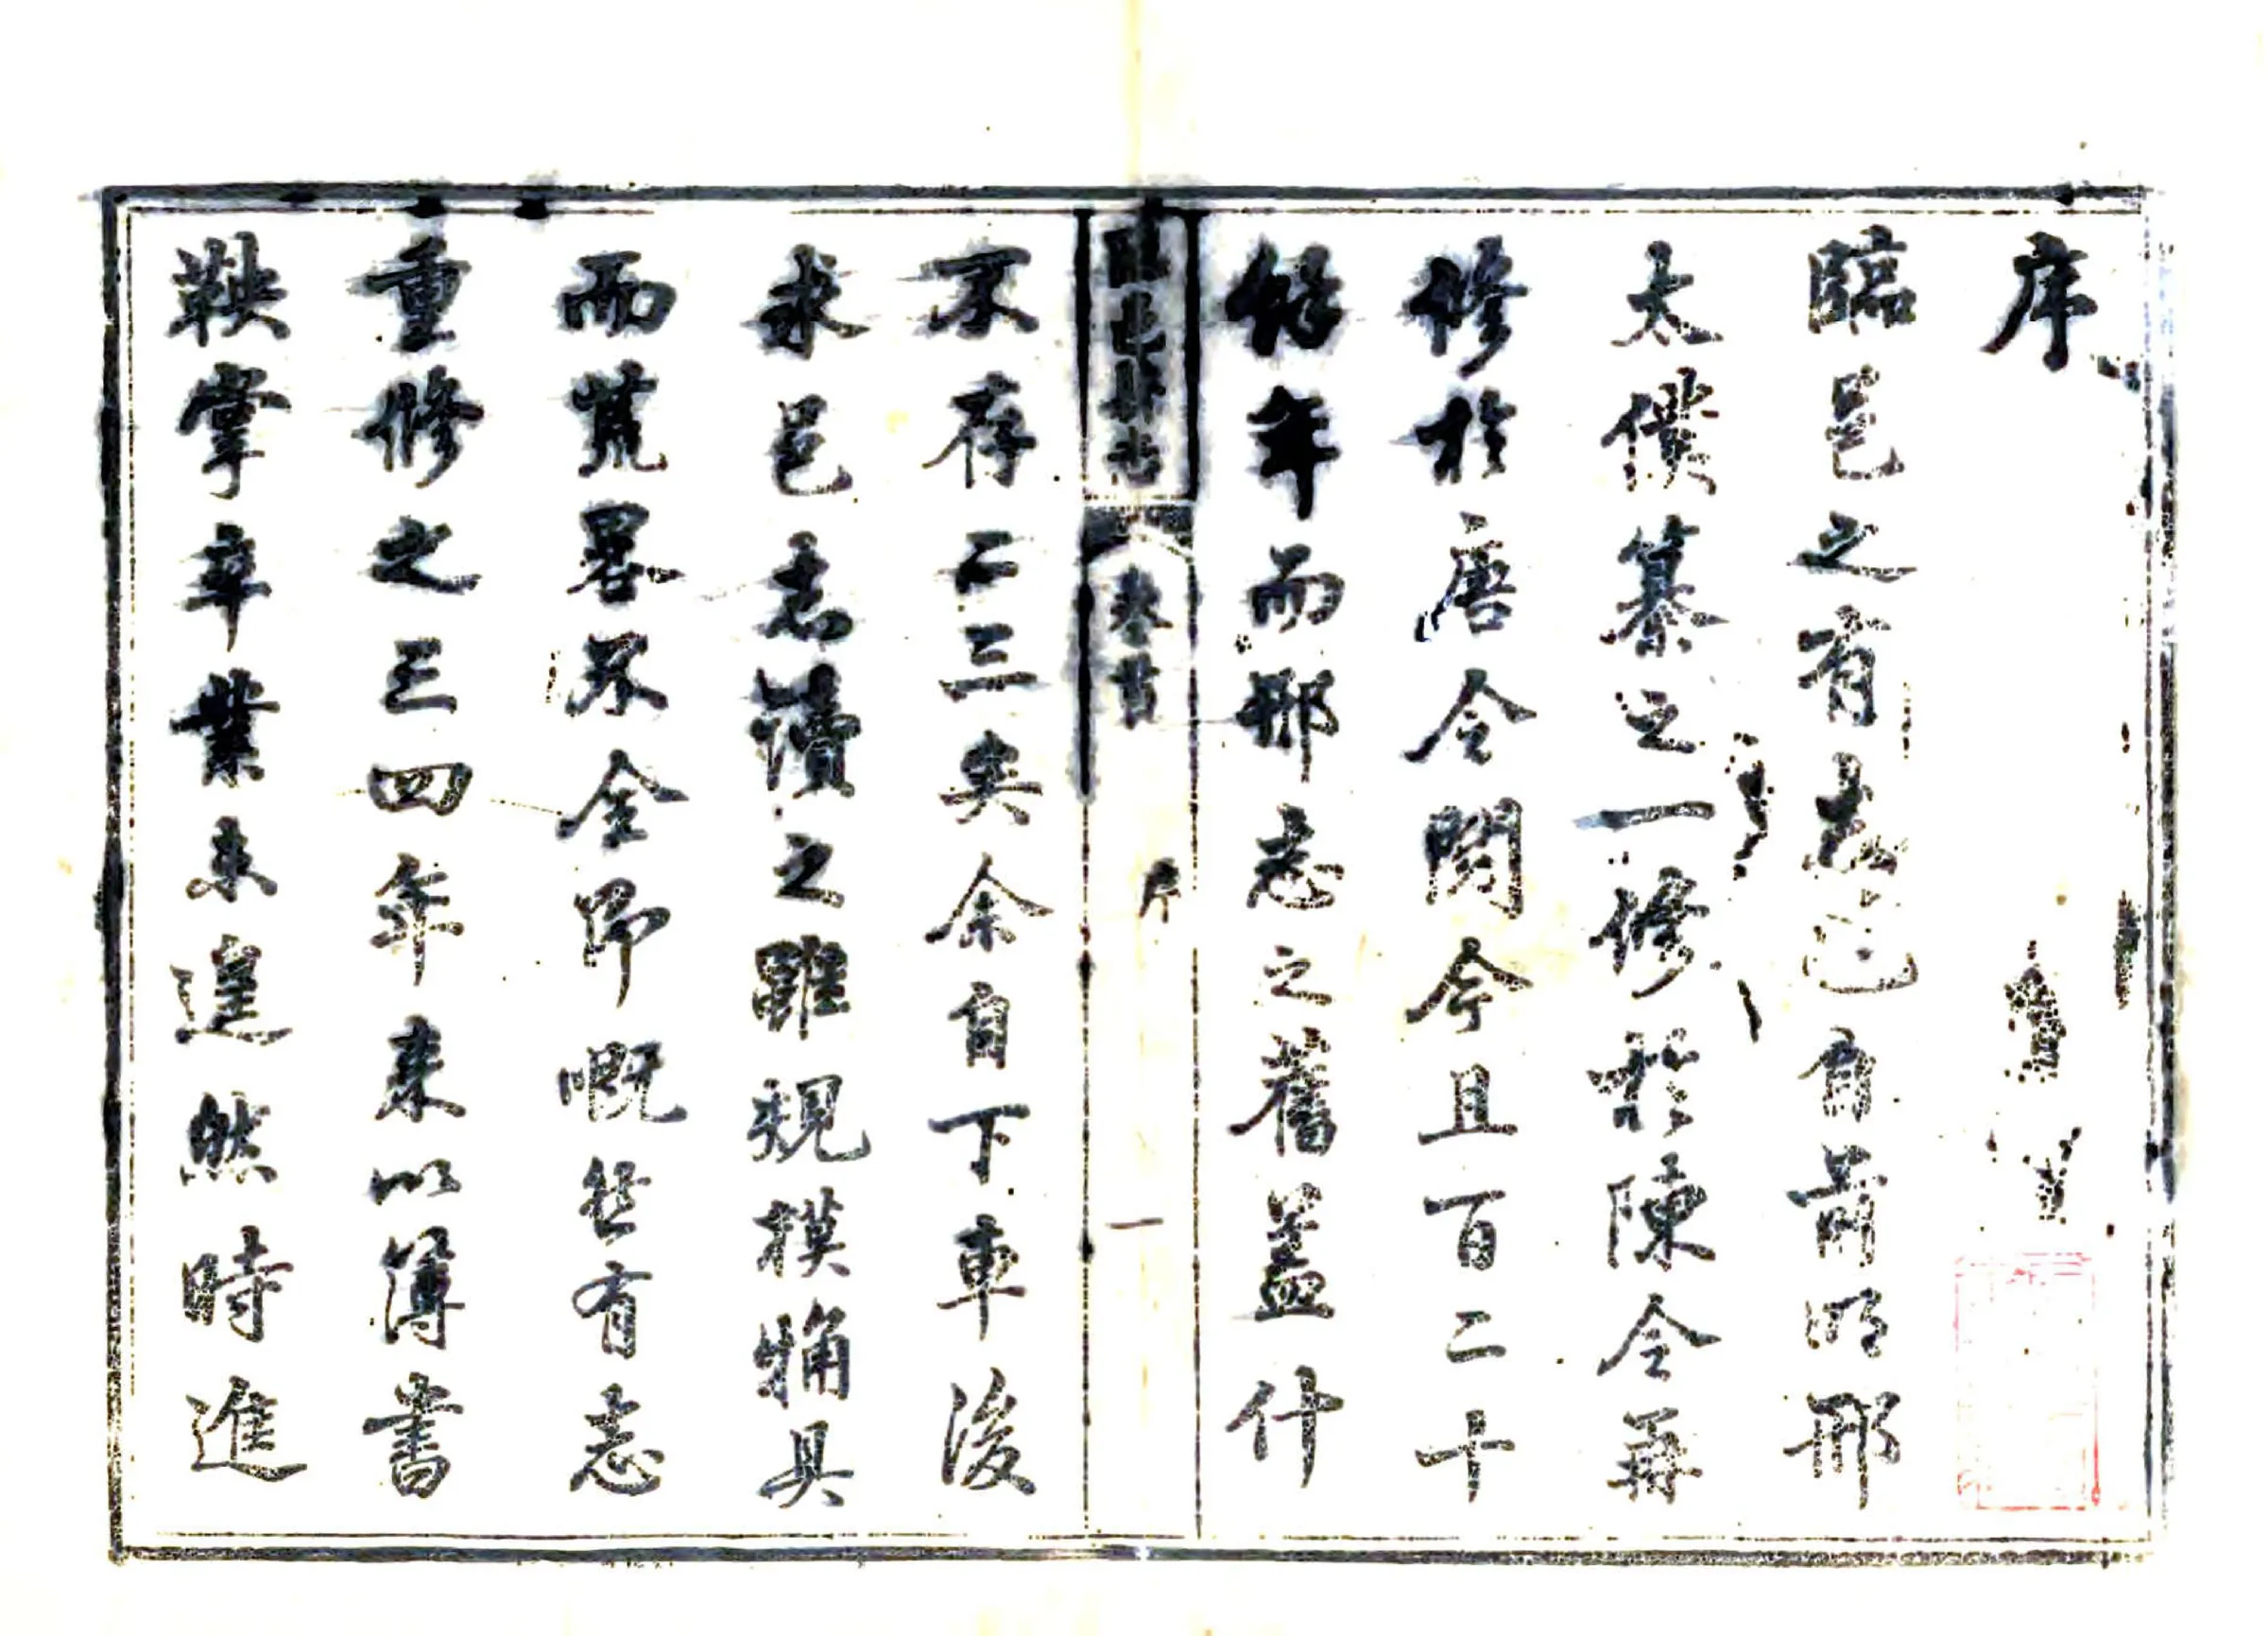 序
臨邑之有志也自前明邢
太僕纂之一修於陳令再
修於唐令閱今且百二十
餘年而邢志之舊蓋什
不存二三矣余自下車後
求邑志讀之雖規模觕具
而荒畧不全即嘅然有志
重修之三四年来以簿書
鞅掌卒業未遑然時進
臨邑縣志
卷首
序
一